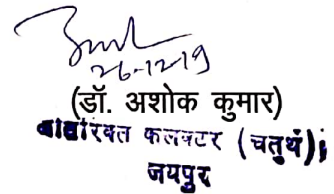 26-12-19
(डॉ. अशोक कुमार)
कलक्टर (चतुर्थ)
जयपुर